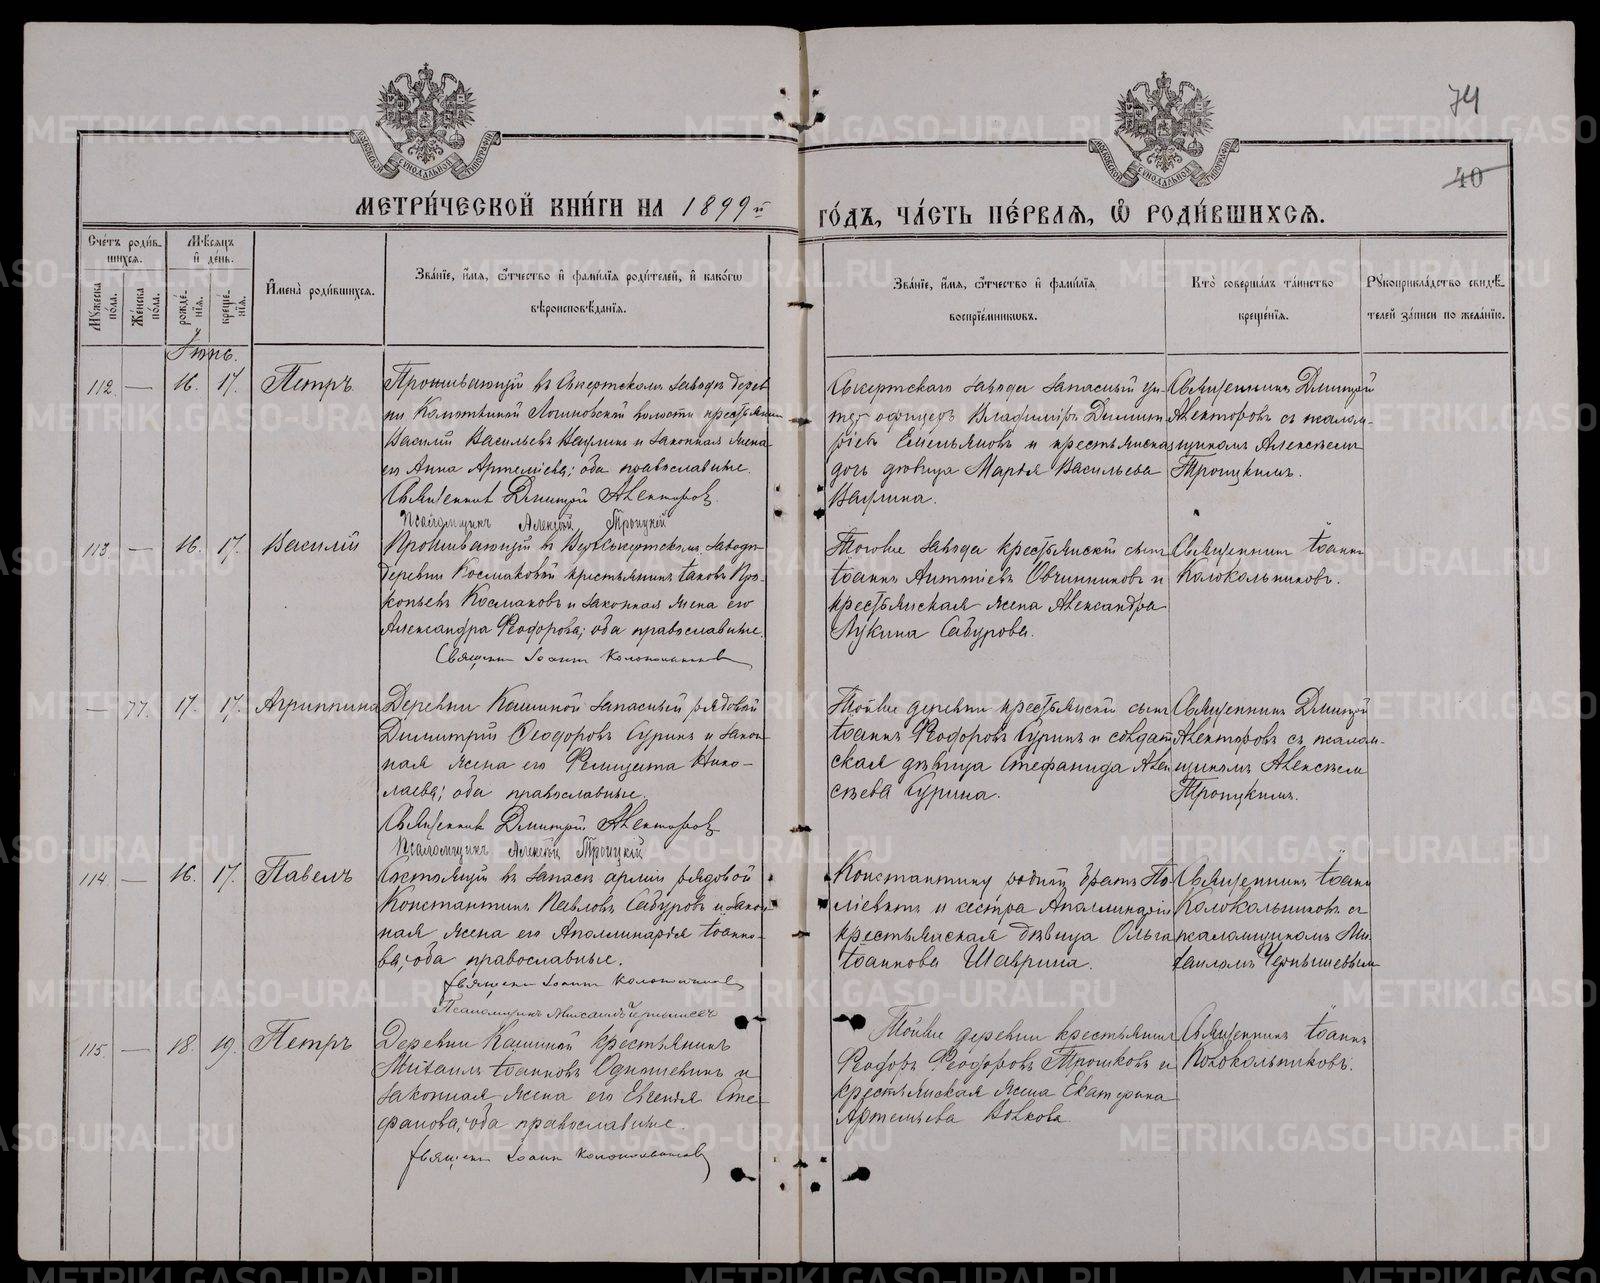 74
40
МЕТРИЧЕСКОЙ КНИГИ НА 1899й ГОДЪ, ЧАСТЬ ПЕРВАЯ, Ѿ РОДИВШИХСЯ.
Счетъ родив-
шихся.
Мужеска пола.
Женска пола.
Мѣсяцъ
и день.
рожде-
нія.
креще-
нія.
Имена родившихся.
Званіе, имя, ѿтчество и фамилія родителей, и какогѡ
вѣроисповѣданія.
Званіе, имя, ѿтчество и фамилія
воспріемниковъ.
Кто совершалъ таинство
крещенія.
Рукоприкладство свидѣ-
телей записи по желанію.
Іюнь.
112. — 16. 17. Петръ
Проживающій въ Сысертскомъ заводѣ дерев
ни волости крестьянинъ
Василій Васильевъ Ваулинъ и законная жена
его Анна Артеміева; оба православные.
Священникъ Димитрій Алекторовъ
Псаломщикъ Алексѣй Троицкій
Сысертскаго завода запасный ун-
тер офицеръ Владиміръ Димит
ріевъ Емельяновъ и крестьянская
дочь дѣвица Марія Васильева
Ваулина.
Священникъ Димитрій
Алекторовъ съ псалом-
щикомъ Алексѣемъ
Троицкимъ.
113. — 16. 17. Василій
Проживающій въ Верхсысертскомъ заводѣ
деревни Космаковой крестьянинъ Іаковъ Про-
копьевъ Космаковъ и законная жена его
Александра Ѳеодорова; оба православные.
Священникъ Іоаннъ Колокольниковъ
Тогоже завода крестьянскій сынъ
Іоаннъ Антоніевъ Овчинниковъ и
крестьянская жена Александра
Лукина Сабурова.
Священникъ Іоаннъ
Колокольниковъ.
— 77. 17. 17. Агриппина
Деревни Кашиной запасный рядовой
Димитрій Ѳеодоровъ Суринъ и закон
ная жена его Фелицата Нико-
лаева; оба православные.
Священникъ Димитрій Алекторовъ
Псаломщикъ Алексѣй Троицкій
Тойже деревни крестьянскій сынъ
Іоаннъ Ѳеодоровъ Суринъ и солдат
ская дѣвица Стефанида Алек
сѣева Сурина.
Священникъ Димитрій
Алекторовъ съ псалом-
щикомъ Алексѣемъ
Троицкимъ.
114. — 16. 17. Павелъ
Состоящій въ запасѣ арміи рядовой
Константинъ Павловъ Сабуровъ и закон
ная жена его Аполлинарія Іоанно-
ва; оба православные.
Священникъ Іоаннъ Колокольниковъ
Псаломщикъ Михаилъ Чернышевъ
Константину родной братъ По-
ліевктъ и сестра Аполлинаріи
крестьянская дѣвица Ольга
Іоаннова Шаврина.
Священникъ Іоаннъ
Колокольниковъ съ
псаломщикомъ Ми-
хаиломъ Чернышевымъ
115. — 18. 19. Петръ
Деревни Кашиной крестьянинъ
Михаилъ Іоанновъ и
законная жена его Евгенія Сте-
фанова, оба православные.
Священникъ Іоаннъ Колокольниковъ
Тойже деревни крестьянинъ
Ѳеодоръ Ѳеодоровъ Трошковъ и
крестьянская жена Екатерина
Артемьева Волкова.
Священникъ Іоаннъ
Колокольниковъ.